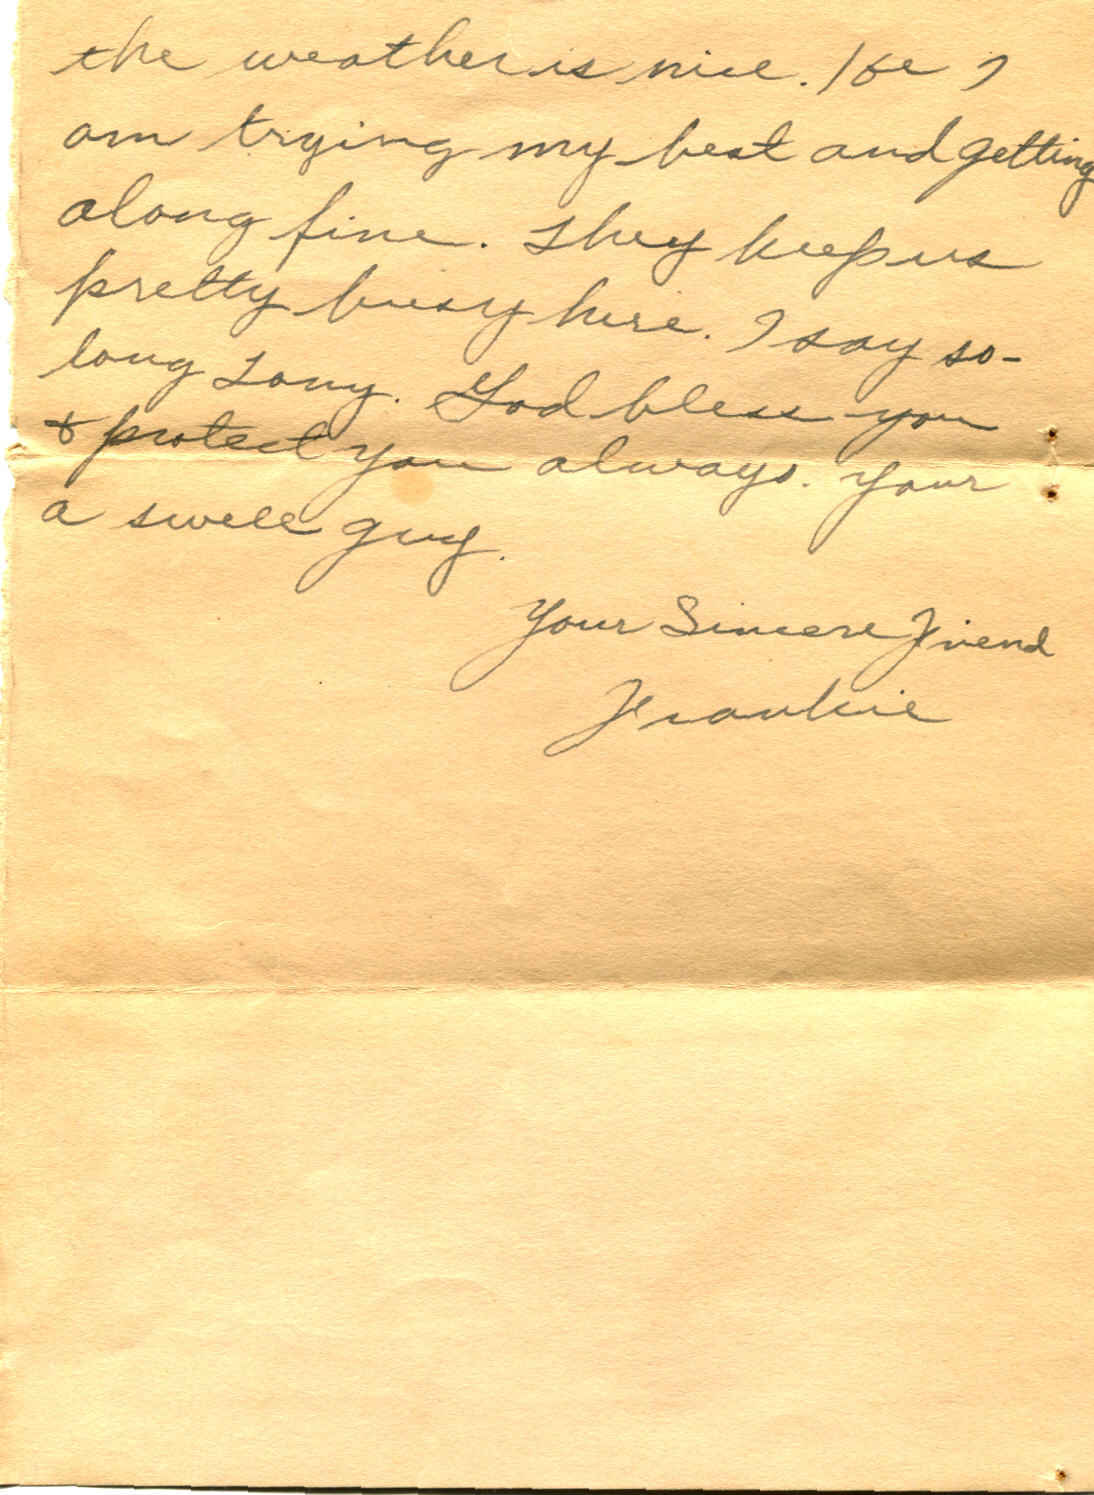 the weather is nice. I
am trying my best and getting
along fine. They keep us
pretty busy here. I say so-
long Tony. God bless you
& protect you always. Your
a swell guy.
Your Sincere Friend
Frankie